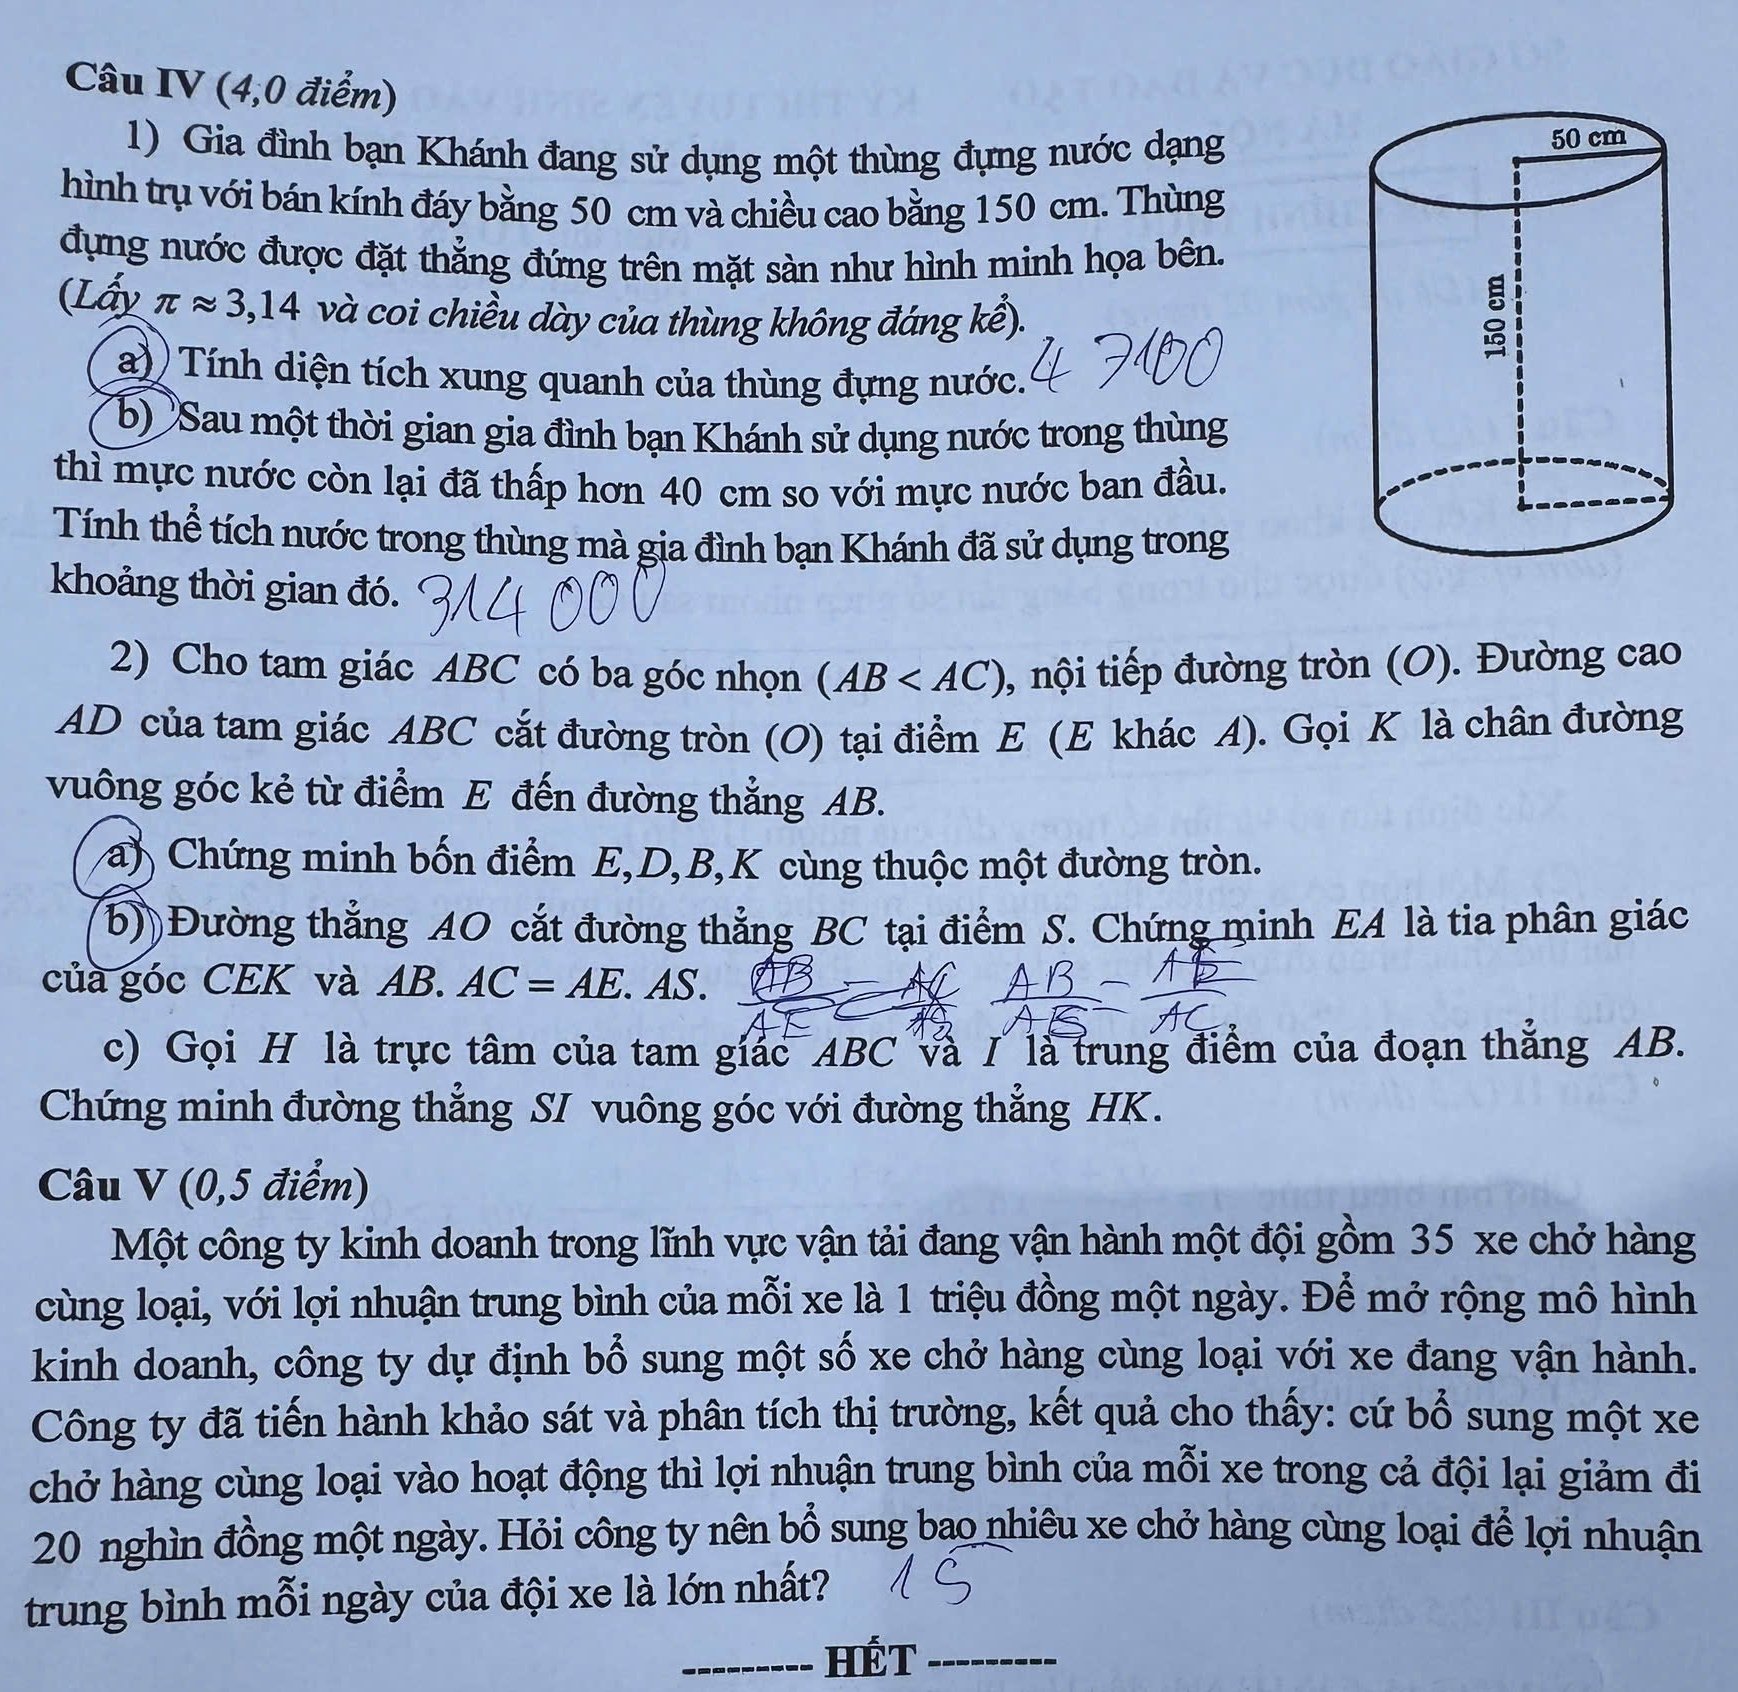 Câu IV (4,0 điểm)
1) Gia đình bạn Khánh đang sử dụng một thùng đựng nước dạng
hình trụ với bán kính đáy bằng 50 cm và chiều cao bằng 150 cm. Thùng
đựng nước được đặt thẳng đứng trên mặt sàn như hình minh họa bên.
(Lấy π ≈ 3,14 và coi chiều dày của thùng không đáng kể).
a) Tính diện tích xung quanh của thùng đựng nước. 47100
b) Sau một thời gian gia đình bạn Khánh sử dụng nước trong thùng
thì mực nước còn lại đã thấp hơn 40 cm so với mực nước ban đầu.
Tính thể tích nước trong thùng mà gia đình bạn Khánh đã sử dụng trong
khoảng thời gian đó. 314000
50 cm
150 cm
2) Cho tam giác ABC có ba góc nhọn (AB < AC), nội tiếp đường tròn (O). Đường cao
AD của tam giác ABC cắt đường tròn (O) tại điểm E (E khác A). Gọi K là chân đường
vuông góc kẻ từ điểm E đến đường thẳng AB.
a) Chứng minh bốn điểm E, D, B, K cùng thuộc một đường tròn.
b) Đường thẳng AO cắt đường thẳng BC tại điểm S. Chứng minh EA là tia phân giác
của góc CEK và AB. AC = AE. AS.
c) Gọi H là trực tâm của tam giác ABC và I là trung điểm của đoạn thẳng AB.
Chứng minh đường thẳng SI vuông góc với đường thẳng HK.
Câu V (0,5 điểm)
Một công ty kinh doanh trong lĩnh vực vận tải đang vận hành một đội gồm 35 xe chở hàng
cùng loại, với lợi nhuận trung bình của mỗi xe là 1 triệu đồng một ngày. Để mở rộng mô hình
kinh doanh, công ty dự định bổ sung một số xe chở hàng cùng loại với xe đang vận hành.
Công ty đã tiến hành khảo sát và phân tích thị trường, kết quả cho thấy: cứ bổ sung một xe
chở hàng cùng loại vào hoạt động thì lợi nhuận trung bình của mỗi xe trong cả đội lại giảm đi
20 nghìn đồng một ngày. Hỏi công ty nên bổ sung bao nhiêu xe chở hàng cùng loại để lợi nhuận
trung bình mỗi ngày của đội xe là lớn nhất?
---------- HẾT ----------